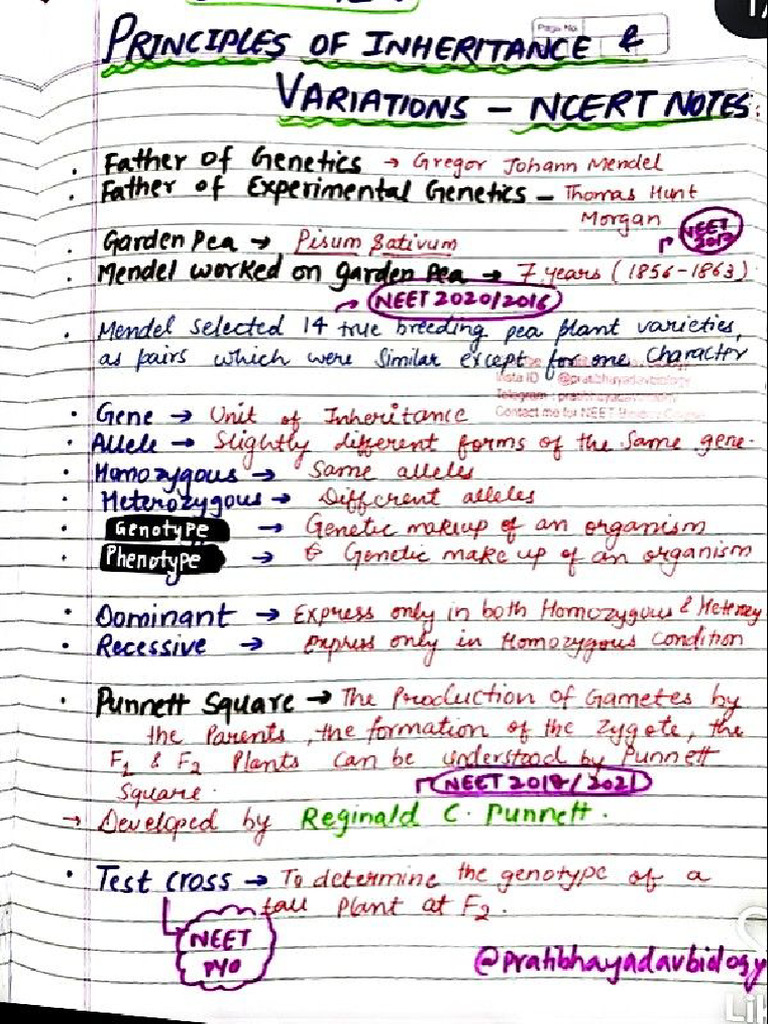 Page No.
PRINCIPLES OF INHERITANCE &
VARIATIONS - NCERT NOTES:
. Father of Genetics → Gregor Johann Mendel
. Father of Experimental Genetics - Thomas Hunt
Morgan
. Garden Pea → Pisum Sativum
NEET
. Mendel worked on garden pea → 7 years (1856-1863)
NEET 2020/2016
. Mendel selected 14 true breeding pea plant varieties,
as pairs which were similar except for one character
Insta ID @pratibhayadavbiology
Telegram
Contact me for NEET
• Gene → Unit of Inheritance
• Allele → Slightly different forms of the same gene.
• Homozygous → Same alleles
• Heterozygous → Different alleles
• Genotype → Genetic makeup of an organism
• Phenotype → Genetic make up of an organism
• Dominant → Express only in both Homozygous & Heterozy
• Recessive → Express only in Homozygous condition
• Punnett Square → The Production of Gametes by
the Parents, the formation of the zygote, the
F1 & F2 Plants can be understood by Punnett
Square.
NEET 2018/2021
→ Developed by Reginald C. Punnett.
• Test cross → To determine the genotype of a
tall plant at F2.
NEET
PYQ
@pratibhayadavbiology